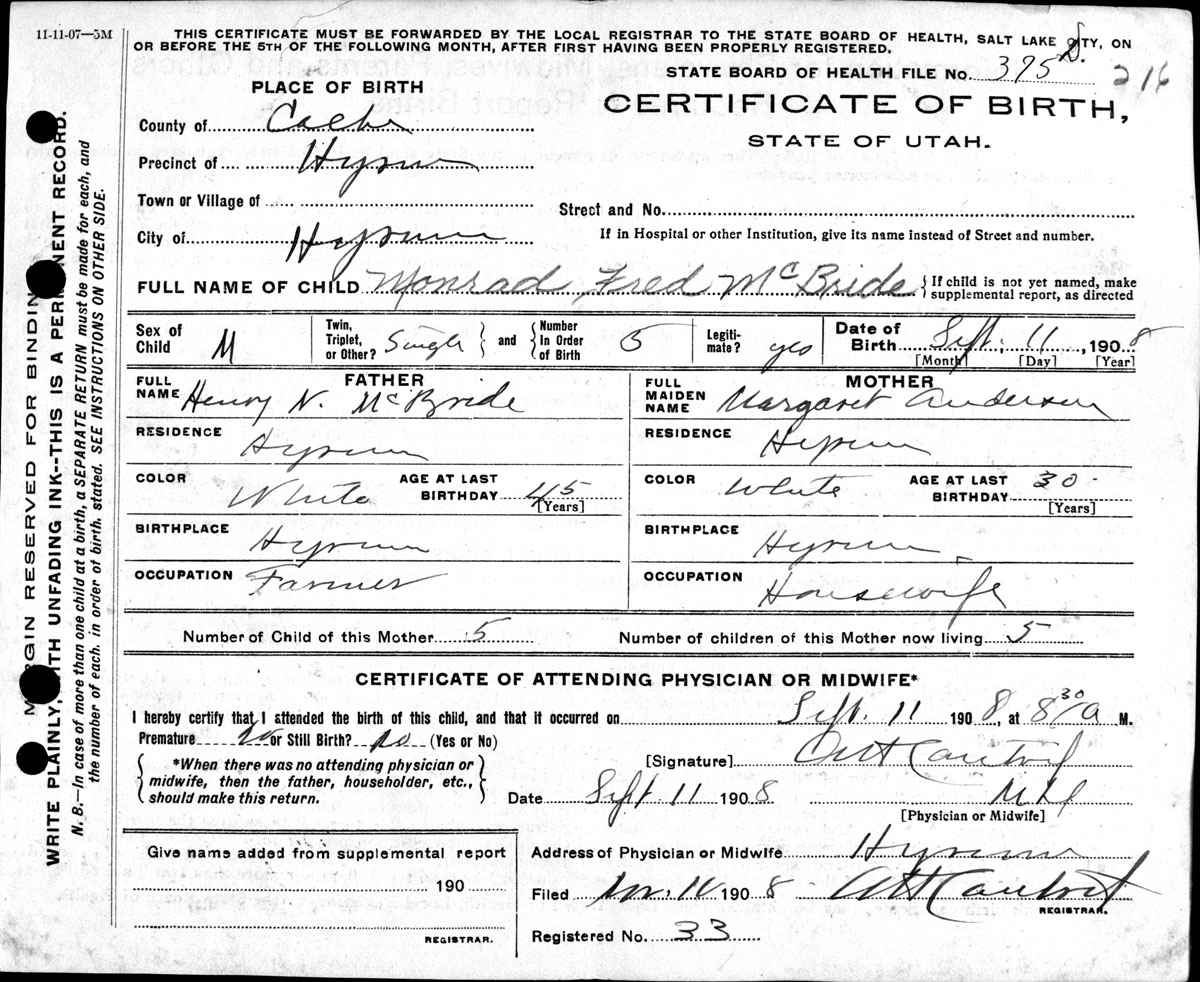 11-11-07—3M
THIS CERTIFICATE MUST BE FORWARDED BY THE LOCAL REGISTRAR TO THE STATE BOARD OF HEALTH, SALT LAKE CITY, ON
OR BEFORE THE 5TH OF THE FOLLOWING MONTH, AFTER FIRST HAVING BEEN PROPERLY REGISTERED.
STATE BOARD OF HEALTH FILE No. 375 D. 216
PLACE OF BIRTH
CERTIFICATE OF BIRTH,
STATE OF UTAH.
County of Cache
Precinct of Hyrum
Town or Village of
Street and No.
City of Hyrum
If in Hospital or other Institution, give its name instead of Street and number.
FULL NAME OF CHILD Monrad Fred McBride {If child is not yet named, make supplemental report, as directed
Sex of Child M Twin, Triplet, or Other? Single and Number In Order of Birth 5 Legiti-mate? yes Date of Birth Sept. 11, 1908
[Month] [Day] [Year]
FATHER MOTHER
FULL NAME Henry N. McBride FULL MAIDEN NAME Margaret Andersen
RESIDENCE Hyrum RESIDENCE Hyrum
COLOR White AGE AT LAST BIRTHDAY 45 [Years] COLOR White AGE AT LAST BIRTHDAY 30 [Years]
BIRTHPLACE Hyrum BIRTHPLACE Hyrum
OCCUPATION Farmer OCCUPATION Housewife
Number of Child of this Mother 5 Number of children of this Mother now living 5
CERTIFICATE OF ATTENDING PHYSICIAN OR MIDWIFE*
I hereby certify that I attended the birth of this child, and that it occurred on Sept. 11 1908, at 8 30/a M.
Premature no or Still Birth? no (Yes or No)
[Signature]
*When there was no attending physician or
midwife, then the father, householder, etc.,
should make this return.
Date Sept 11 1908 MD
[Physician or Midwife]
Give name added from supplemental report
190
REGISTRAR.
Address of Physician or Midwife Hyrum
Filed 1908
REGISTRAR.
Registered No. 33
MARGIN RESERVED FOR BINDING
WRITE PLAINLY, WITH UNFADING INK--THIS IS A PERMANENT RECORD.
N. B.—In case of more than one child at a birth, a SEPARATE RETURN must be made for each, and
the number of each, in order of birth, stated. SEE INSTRUCTIONS ON OTHER SIDE.